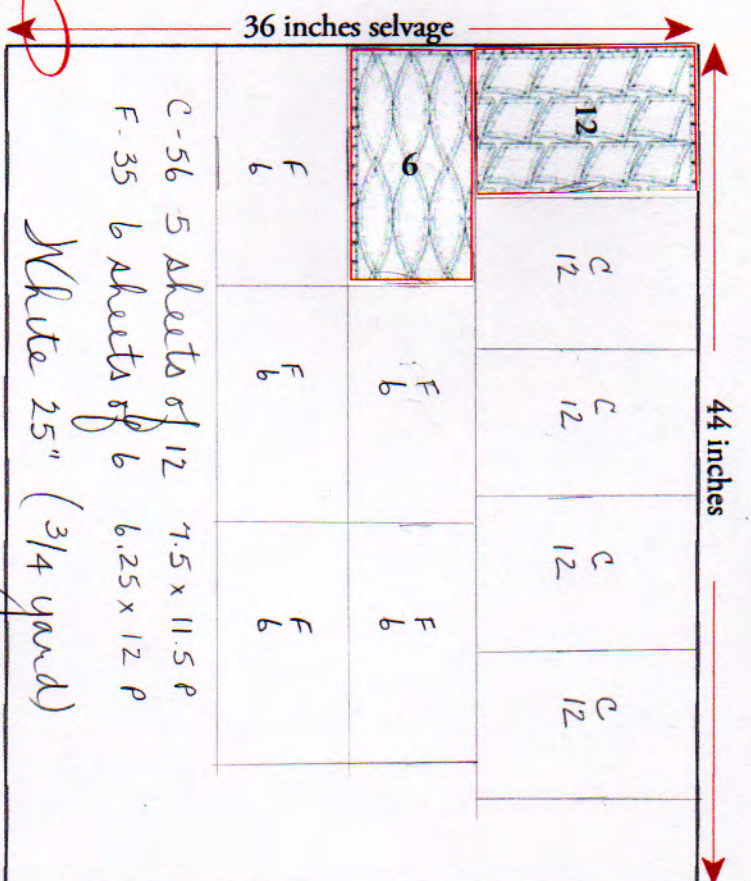 36 inches selvage
44 inches
12
6
C
12
C
12
C
12
C
12
F
6
F
6
F
6
F
6
F
6
C-56 5 sheets of 12 7.5 x 11.5 P
F-35 6 sheets of 6 6.25 x 12 P
White 25" (3/4 yard)